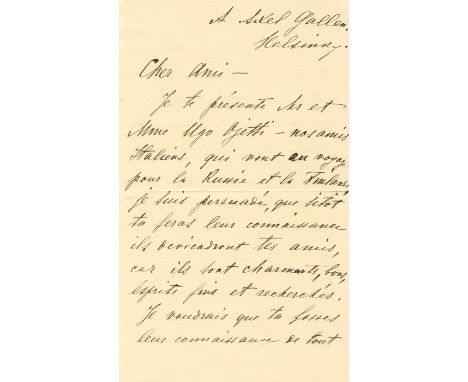 A Axel Gallen.
Helsinky.
Cher Ami –
Je te présente Mr et
Mme Ugo Ojetti – nos amis
Italiens, qui vont en voyage
pour la Russie et la Finlande,
je suis persuadé, que sitôt
tu feras leur connaissance
ils deviendront tes amis,
car ils sont charmants, bons,
esprits fins et recherchés.
Je voudrais que tu fasses
leur connaissance de tout